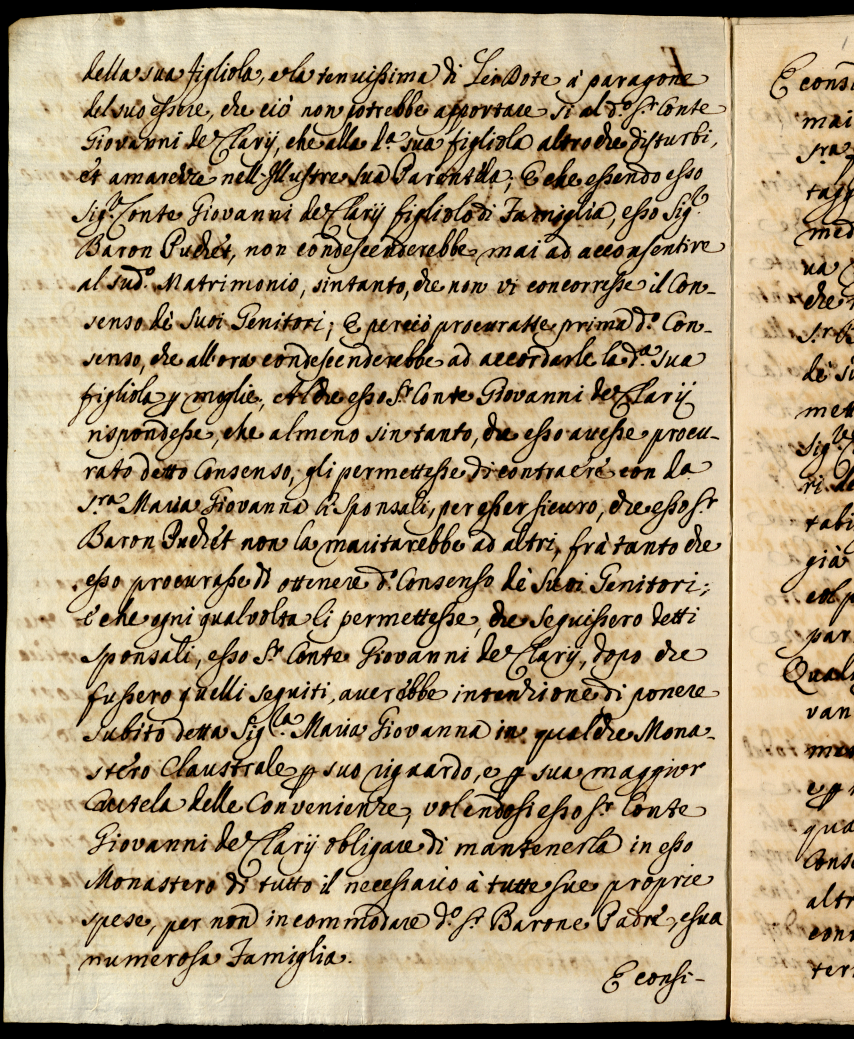 della sua figliola, e la tenuissima di Lei Dote à paragone
del suo essere, che ciò non potrebbe apportare sì al d.º S.r Conte
Giovanni de Clarij, che alla d.ª sua figliola altro che disturbi,
et amarezze nell'Illustre sua Parentela; E che essendo esso
Sig.r Conte Giovanni de Clarij figliolo di Famiglia, esso Sig.r
Baron Pudiét, non condescenderebbe mai ad acconsentire
al sud.º Matrimonio, sintanto, che non vi concorresse il Con-
senso de Suoi Genitori; E perciò procurasse prima d.º Con-
senso, che all'ora condescenderebbe ad accordarle la d.ª sua
figliola p moglie; Al che esso S.r Conte Giovanni de Clarij
rispondesse, che almeno sin tanto, che esso avesse procu-
rato detto Consenso, gli permettesse di contraere con la
S.ra Maria Giovanna li Sponsali, per esser sicuro, che esso S.r
Baron Pudiét non la maritarebbe ad altri, frà tanto che
esso procurasse di ottenere d.º Consenso dè Suoi Genitori;
è che ogni qualvolta li permettesse, che seguissero detti
Sponsali, esso S.r Conte Giovanni de Clarij, dopo che
fussero quelli seguiti, averebbe intenzione di ponere
subito detta Sig.la Maria Giovanna in qualche Mona-
stero Claustrale p suo riguardo, e p sua maggior
Cautela delle Convenienze, volendosi esso S.r Conte
Giovanni de Clarij obligare di mantenerla in esso
Monastero di tutto il necessario à tutte sue proprie
spese, per non incommodare d.º S.r Barone Padre, e sua
numerosa Famiglia.
E consi-